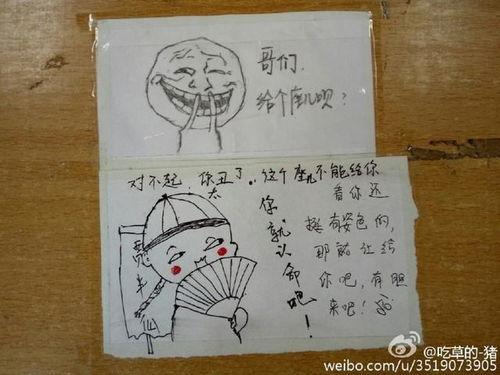 哥们.
给个座儿呗?
对不起,你太丑了..这个座儿不能给你
你就认命吧!
看你还
挺有姿色的,
那就让给
你吧,有胆
来吧!
半仙
@吃草的-猪
weibo.com/u/3519073905